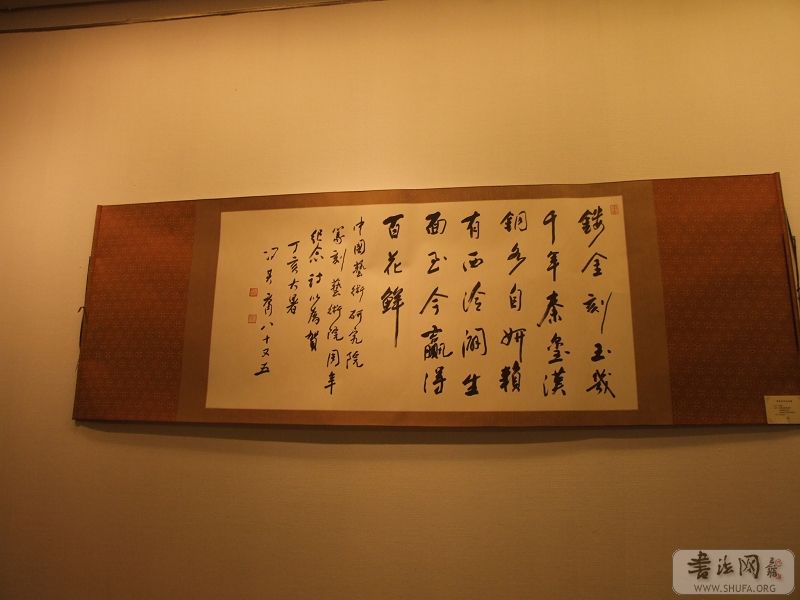 鏤金刻玉幾
千年秦璽漢
銅各自妍賴
有西泠開生
面至今贏得
百花鮮
中國藝術研究院
篆刻藝術院周年
紀念詩以為賀
丁亥大暑
八十又五
書法网
WWW.SHUFA.ORG